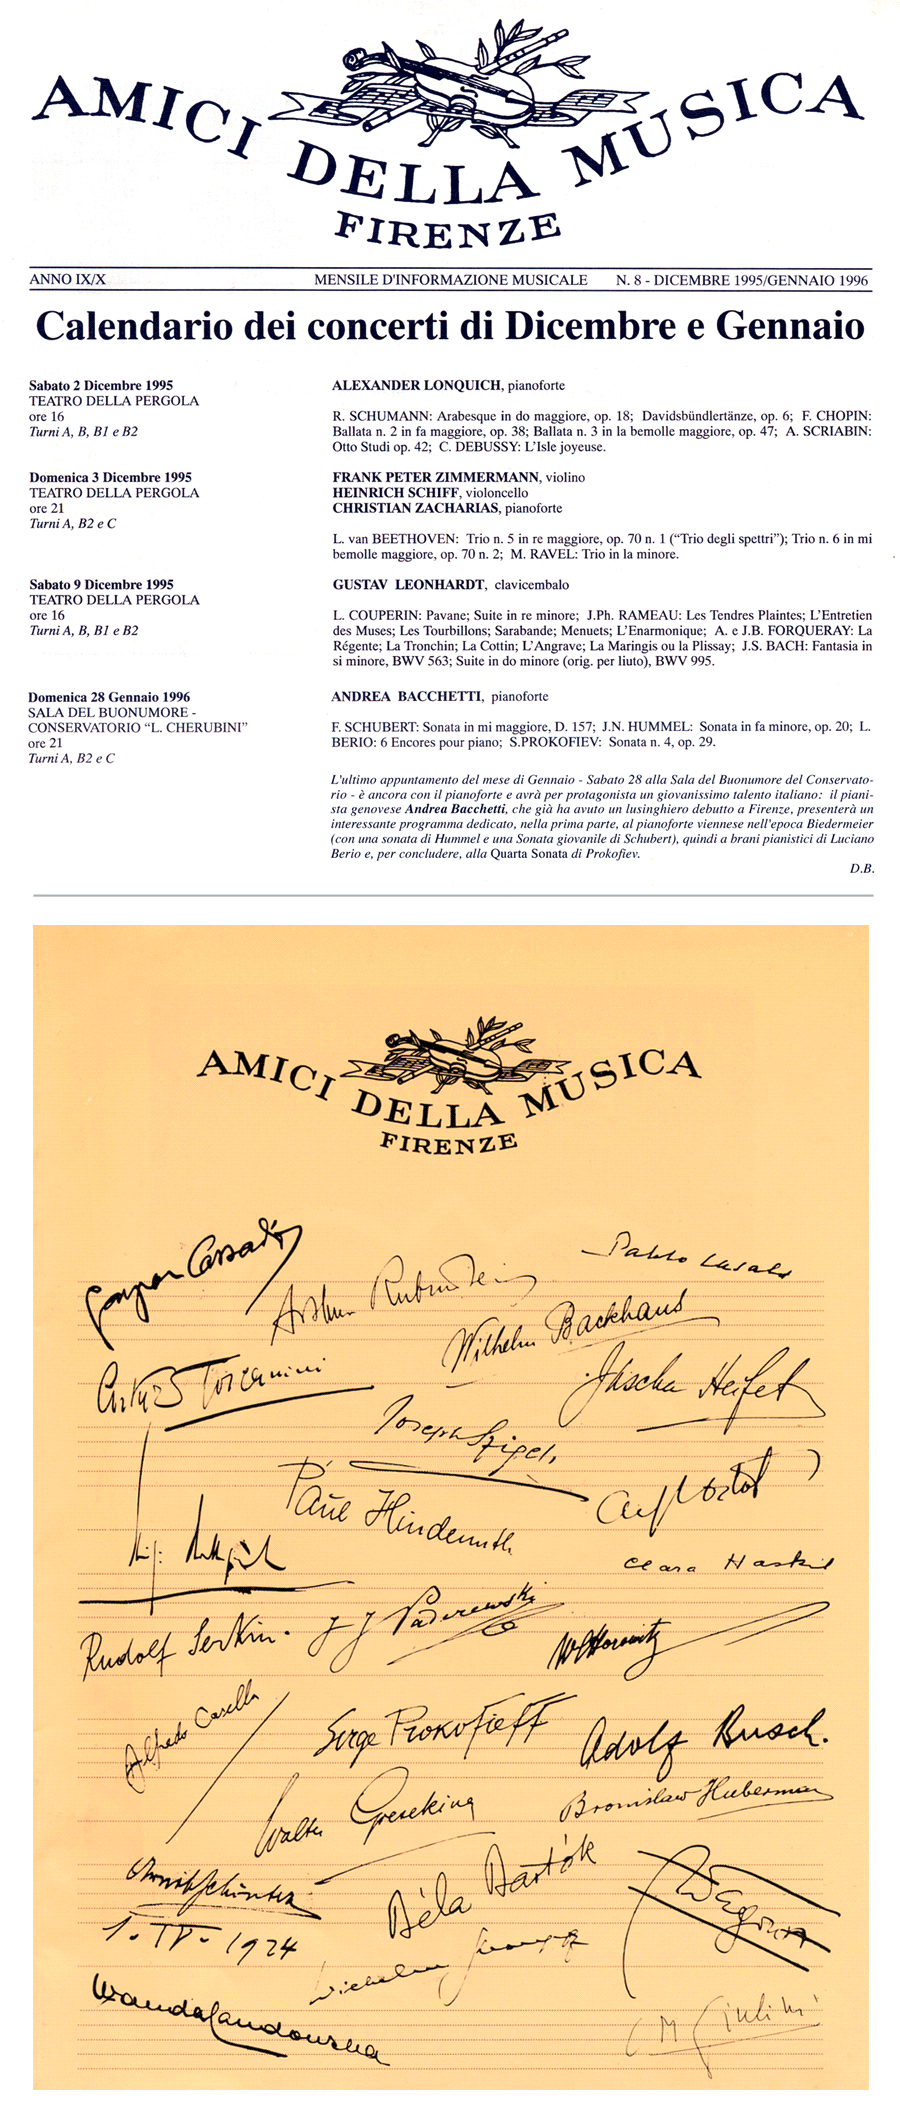 AMICI DELLA MUSICA
FIRENZE
ANNO IX/X MENSILE D'INFORMAZIONE MUSICALE N. 8 - DICEMBRE 1995/GENNAIO 1996
Calendario dei concerti di Dicembre e Gennaio
Sabato 2 Dicembre 1995
TEATRO DELLA PERGOLA
ore 16
Turni A, B, B1 e B2
ALEXANDER LONQUICH, pianoforte
R. SCHUMANN: Arabesque in do maggiore, op. 18; Davidsbündlertänze, op. 6; F. CHOPIN:
Ballata n. 2 in fa maggiore, op. 38; Ballata n. 3 in la bemolle maggiore, op. 47; A. SCRIABIN:
Otto Studi op. 42; C. DEBUSSY: L'Isle joyeuse.
Domenica 3 Dicembre 1995
TEATRO DELLA PERGOLA
ore 21
Turni A, B2 e C
FRANK PETER ZIMMERMANN, violino
HEINRICH SCHIFF, violoncello
CHRISTIAN ZACHARIAS, pianoforte
L. van BEETHOVEN: Trio n. 5 in re maggiore, op. 70 n. 1 (“Trio degli spettri”); Trio n. 6 in mi
bemolle maggiore, op. 70 n. 2; M. RAVEL: Trio in la minore.
Sabato 9 Dicembre 1995
TEATRO DELLA PERGOLA
ore 16
Turni A, B, B1 e B2
GUSTAV LEONHARDT, clavicembalo
L. COUPERIN: Pavane; Suite in re minore; J.Ph. RAMEAU: Les Tendres Plaintes; L'Entretien
des Muses; Les Tourbillons; Sarabande; Menuets; L'Enarmonique; A. e J.B. FORQUERAY: La
Régente; La Tronchin; La Cottin; L'Angrave; La Maringis ou la Plissay; J.S. BACH: Fantasia in
si minore, BWV 563; Suite in do minore (orig. per liuto), BWV 995.
Domenica 28 Gennaio 1996
SALA DEL BUONUMORE -
CONSERVATORIO “L. CHERUBINI”
ore 21
Turni A, B2 e C
ANDREA BACCHETTI, pianoforte
F. SCHUBERT: Sonata in mi maggiore, D. 157; J.N. HUMMEL: Sonata in fa minore, op. 20; L.
BERIO: 6 Encores pour piano; S.PROKOFIEV: Sonata n. 4, op. 29.
L'ultimo appuntamento del mese di Gennaio - Sabato 28 alla Sala del Buonumore del Conservato-
rio - è ancora con il pianoforte e avrà per protagonista un giovanissimo talento italiano: il piani-
sta genovese Andrea Bacchetti, che già ha avuto un lusinghiero debutto a Firenze, presenterà un
interessante programma dedicato, nella prima parte, al pianoforte viennese nell'epoca Biedermeier
(con una sonata di Hummel e una Sonata giovanile di Schubert), quindi a brani pianistici di Luciano
Berio e, per concludere, alla Quarta Sonata di Prokofiev.
D.B.
AMICI DELLA MUSICA
FIRENZE
Gaspar Cassadó
Pablo Casals
Arthur Rubinstein
Wilhelm Backhaus
Arturo Toscanini
Jascha Heifetz
Joseph Szigeti
Paul Hindemith
Alf Cortot
Clara Haskil
Rudolf Serkin
J J Paderewski
W Horowitz
Alfredo Casella
Serge Prokofieff
Adolf Busch.
Walter Gieseking
Bronislaw Huberman
Arnold Schönberg
1. IV. 1924
Béla Bartók
Wilhelm
Wanda Landowska
C M Giulini